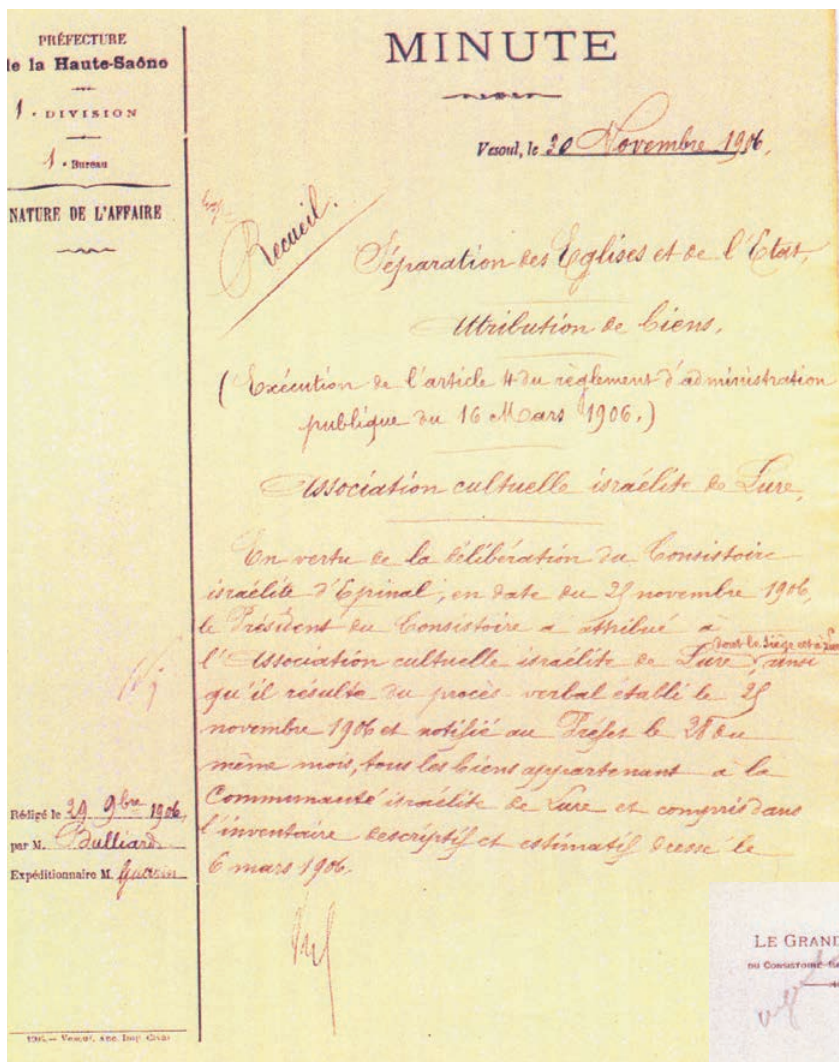 PRÉFECTURE
de la Haute-Saône
1 DIVISION
1 Bureau
NATURE DE L'AFFAIRE
MINUTE
Vesoul, le 30 Novembre 1906.
Recueil.
Séparation des Eglises et de l'Etat.
Attribution de biens.
(Exécution de l'article 4 du règlement d'administration
publique du 16 Mars 1906.)
Association cultuelle israélite de Lure.
En vertu de la délibération du Consistoire
israélite d'Epinal, en date du 25 novembre 1906,
le Président du Consistoire a attribué à
l'Association cultuelle israélite de Lure (dont le siège est à Lure) ainsi
qu'il résulte du procès-verbal établi le 25
novembre 1906 et notifié au Préfet le 28 du
même mois, tous les biens appartenant à la
Communauté israélite de Lure et compris dans
l'inventaire descriptif et estimatif dressé le
6 mars 1906.
Rédigé le 29 9bre 1906,
par M. Bulliard
Expéditionnaire M. Guerin
1906. — Vesoul, anc. Imp. Cival
LE GRAND
DU CONSISTOIRE